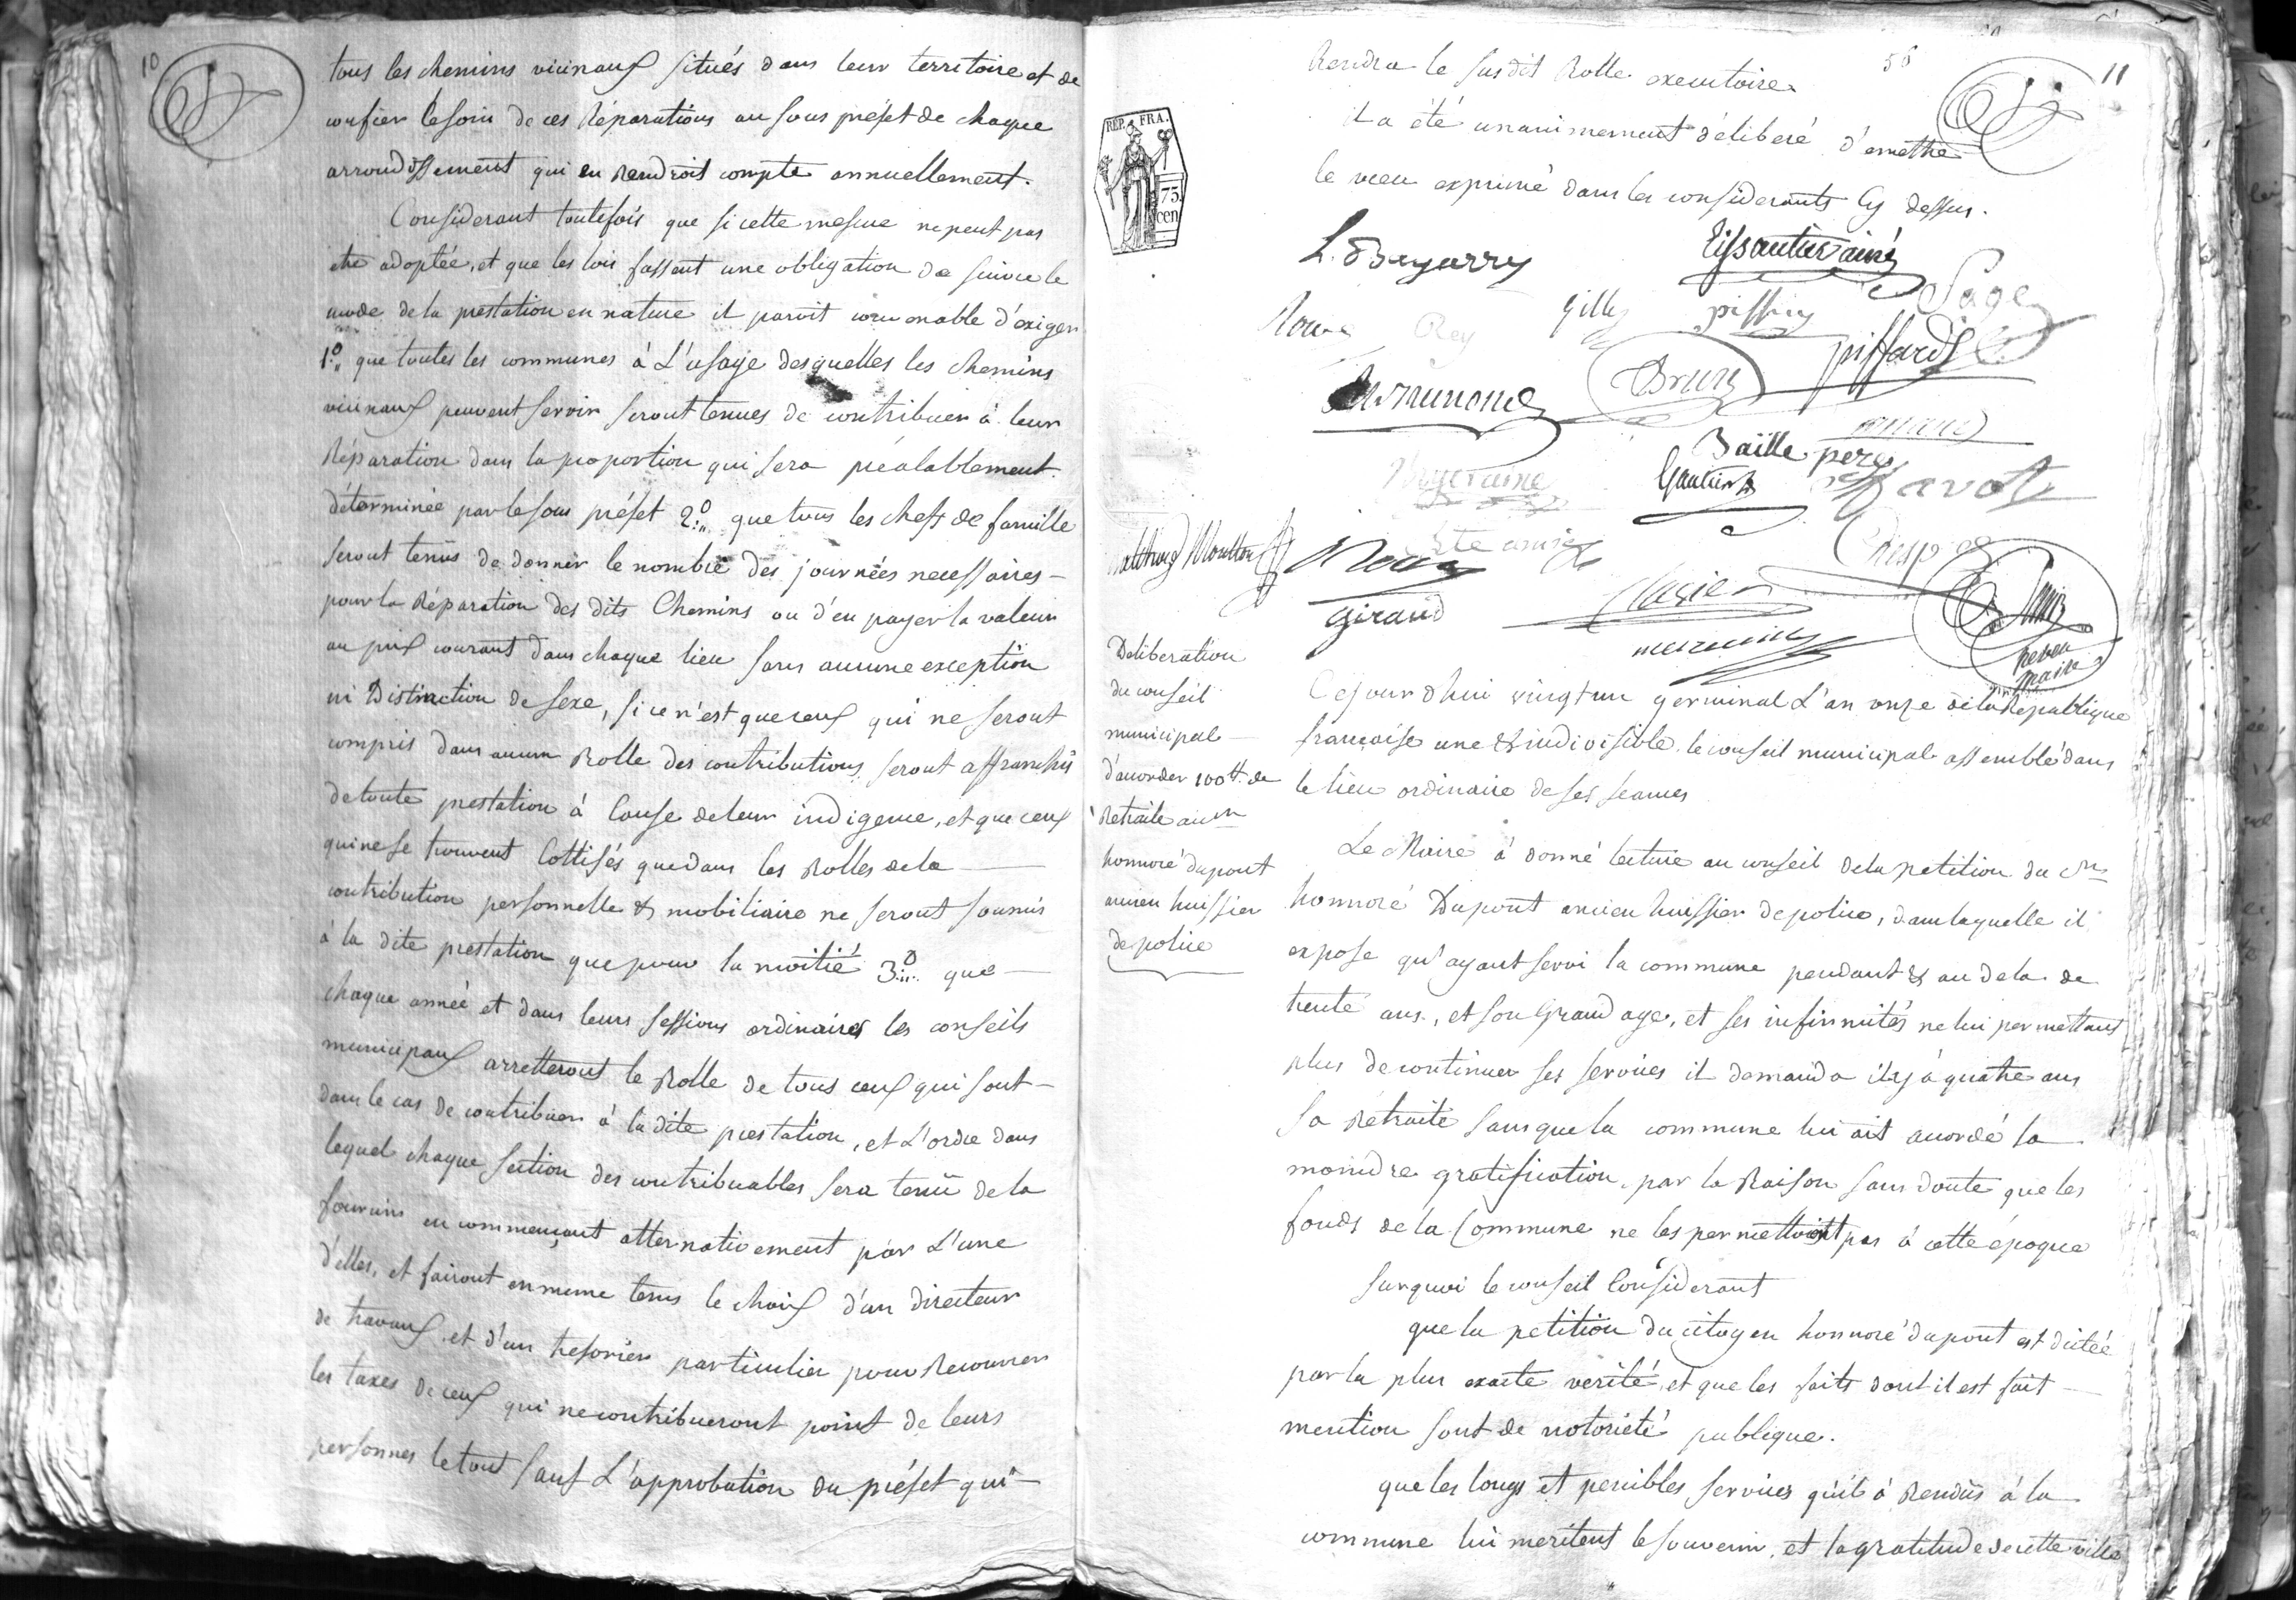 10
tous les chemins vicinaux situés dans leur territoire et de
confier le soin de ces Réparations au sous préfet de chaque
arrondissement qui en Rendroit compte annuellement.
Considerant toutefois que si cette mesure ne peut pas
etre adoptée, et que les lois fassent une obligation de suivre le
mode de la prestation en nature il paroit convenable d'exiger
1.° que toutes les communes à L'usage desquelles les chemins
vicinaux peuvent servir seront tenues de contribuer à leur
Réparation dans la proportion qui sera préalablement
déterminée par le sous préfet 2.° que tous les chefs de famille
seront tenus de donner le nombre des journées necessaires
pour la Réparation des dits Chemins ou d'en payer la valeur
au prix courant dans chaque lieu sans aucune exception
ni Distinction de sexe, si ce n'est que ceux qui ne seront
compris dans aucun Rolle des contributions seront affranchis
de toute prestation à Cause de leur indigence, et que ceux
qui ne se trouvent Cottisés que dans les Rolles de la
contribution personnelle & mobiliaire ne seront soumis
à la dite prestation que pour la moitié 3.° que
chaque année et dans leurs sessions ordinaires les conseils
municipaux arretteront le Rolle de tous ceux qui sont
dans le cas de contribuer à la dite prestation, et L'ordre dans
lequel chaque section des contribuables sera tenü de la
fournir en commençant alternativement par L'une
d'elles, et fairont en meme tems le choix d'un directeur
de travaux et d'un tresorier particulier pour Recouvrer
les taxes de ceux qui ne contribueront point de leurs
personnes le tout sauf L'approbation du préfet qui
58
11
Rendra le susdit Rolle executoire
il a été unanimement délibéré d'emettre
le vœu exprimé dans les considerants Cy dessus.
REP. FRA.
75.
cen
L. Bayarry
Tissautier ainé
Roux
Rey
Gilly
Piffard
Sage
Brun
piffard
Baille pere
Gautier
Giraud
neveu
maire
Deliberation
du conseil
municipal
d'accorder 100 tt. de
Retraite au Cn
honnoré dupont
ancien huissier
de police
Cejourdhui vingt un germinal L'an onze de la Republique
françoise une & indivisible. le conseil municipal assemblé dans
le lieu ordinaire de ses seances
Le Maire à donné lecture au conseil de la petition du Cn
honnoré Dupont ancien huissier de police, dans laquelle il
expose qu'ayant servi la commune pendant & au dela de
trente ans, et son Grand age, et ses infirmités ne lui permettant
plus de continuer ses services il demanda il y à quatre ans
sa Retraite sans que la commune lui ait accordé la
moindre gratification par la Raison sans doute que les
fonds de la Commune ne les permettoient pas à cette époque
surquoi le conseil Considerant
que la petition du citoyen honnoré dupont est dictée
par la plus exacte verité, et que les faits dont il est fait
mention sont de notorieté publique.
que les longs et penibles services qu'il à Rendüs à la
commune lui meritent le souvenir, et la gratitude de cette ville